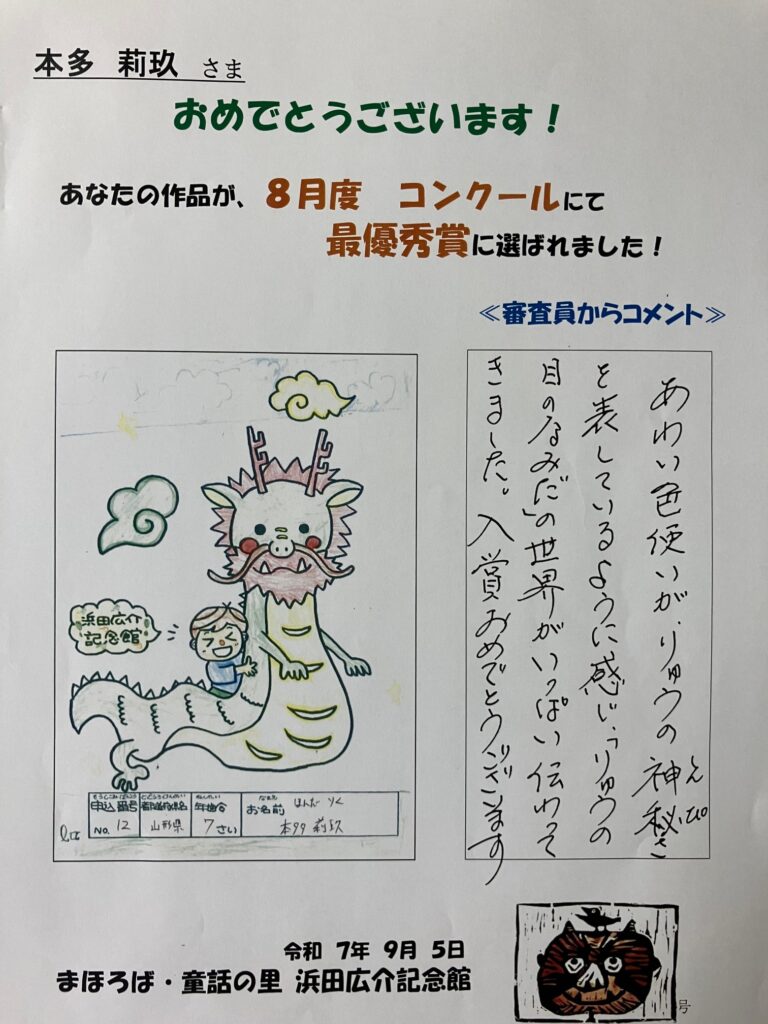 本多 莉玖 さま
おめでとうございます！
あなたの作品が、８月度 コンクールにて
最優秀賞に選ばれました！
≪審査員からコメント≫
あわい色使いが、りゅうの神秘さ
しんぴ
を表しているように感じ、「りゅうの
目のなみだ」の世界がいっぱい伝わって
きました。入賞おめでとうございます
浜田広介
記念館
もうしこみばんごう とどうふけんめい ねんれい なまえ
申込番号 都道府県名 年齢 お名前
No. 12 山形県 7さい ほんだ りく
本多 莉玖
令和 7年 9月 5日
まほろば・童話の里 浜田広介記念館
号